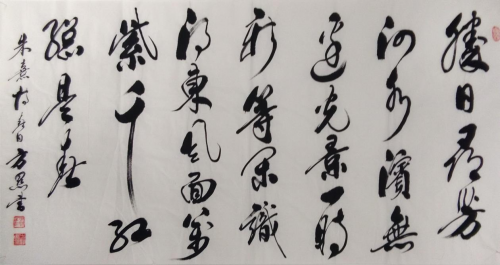 勝日尋芳
泗水濱無
邊光景一時
新等閒識
得東風面萬
紫千紅
總是春
朱熹詩春日